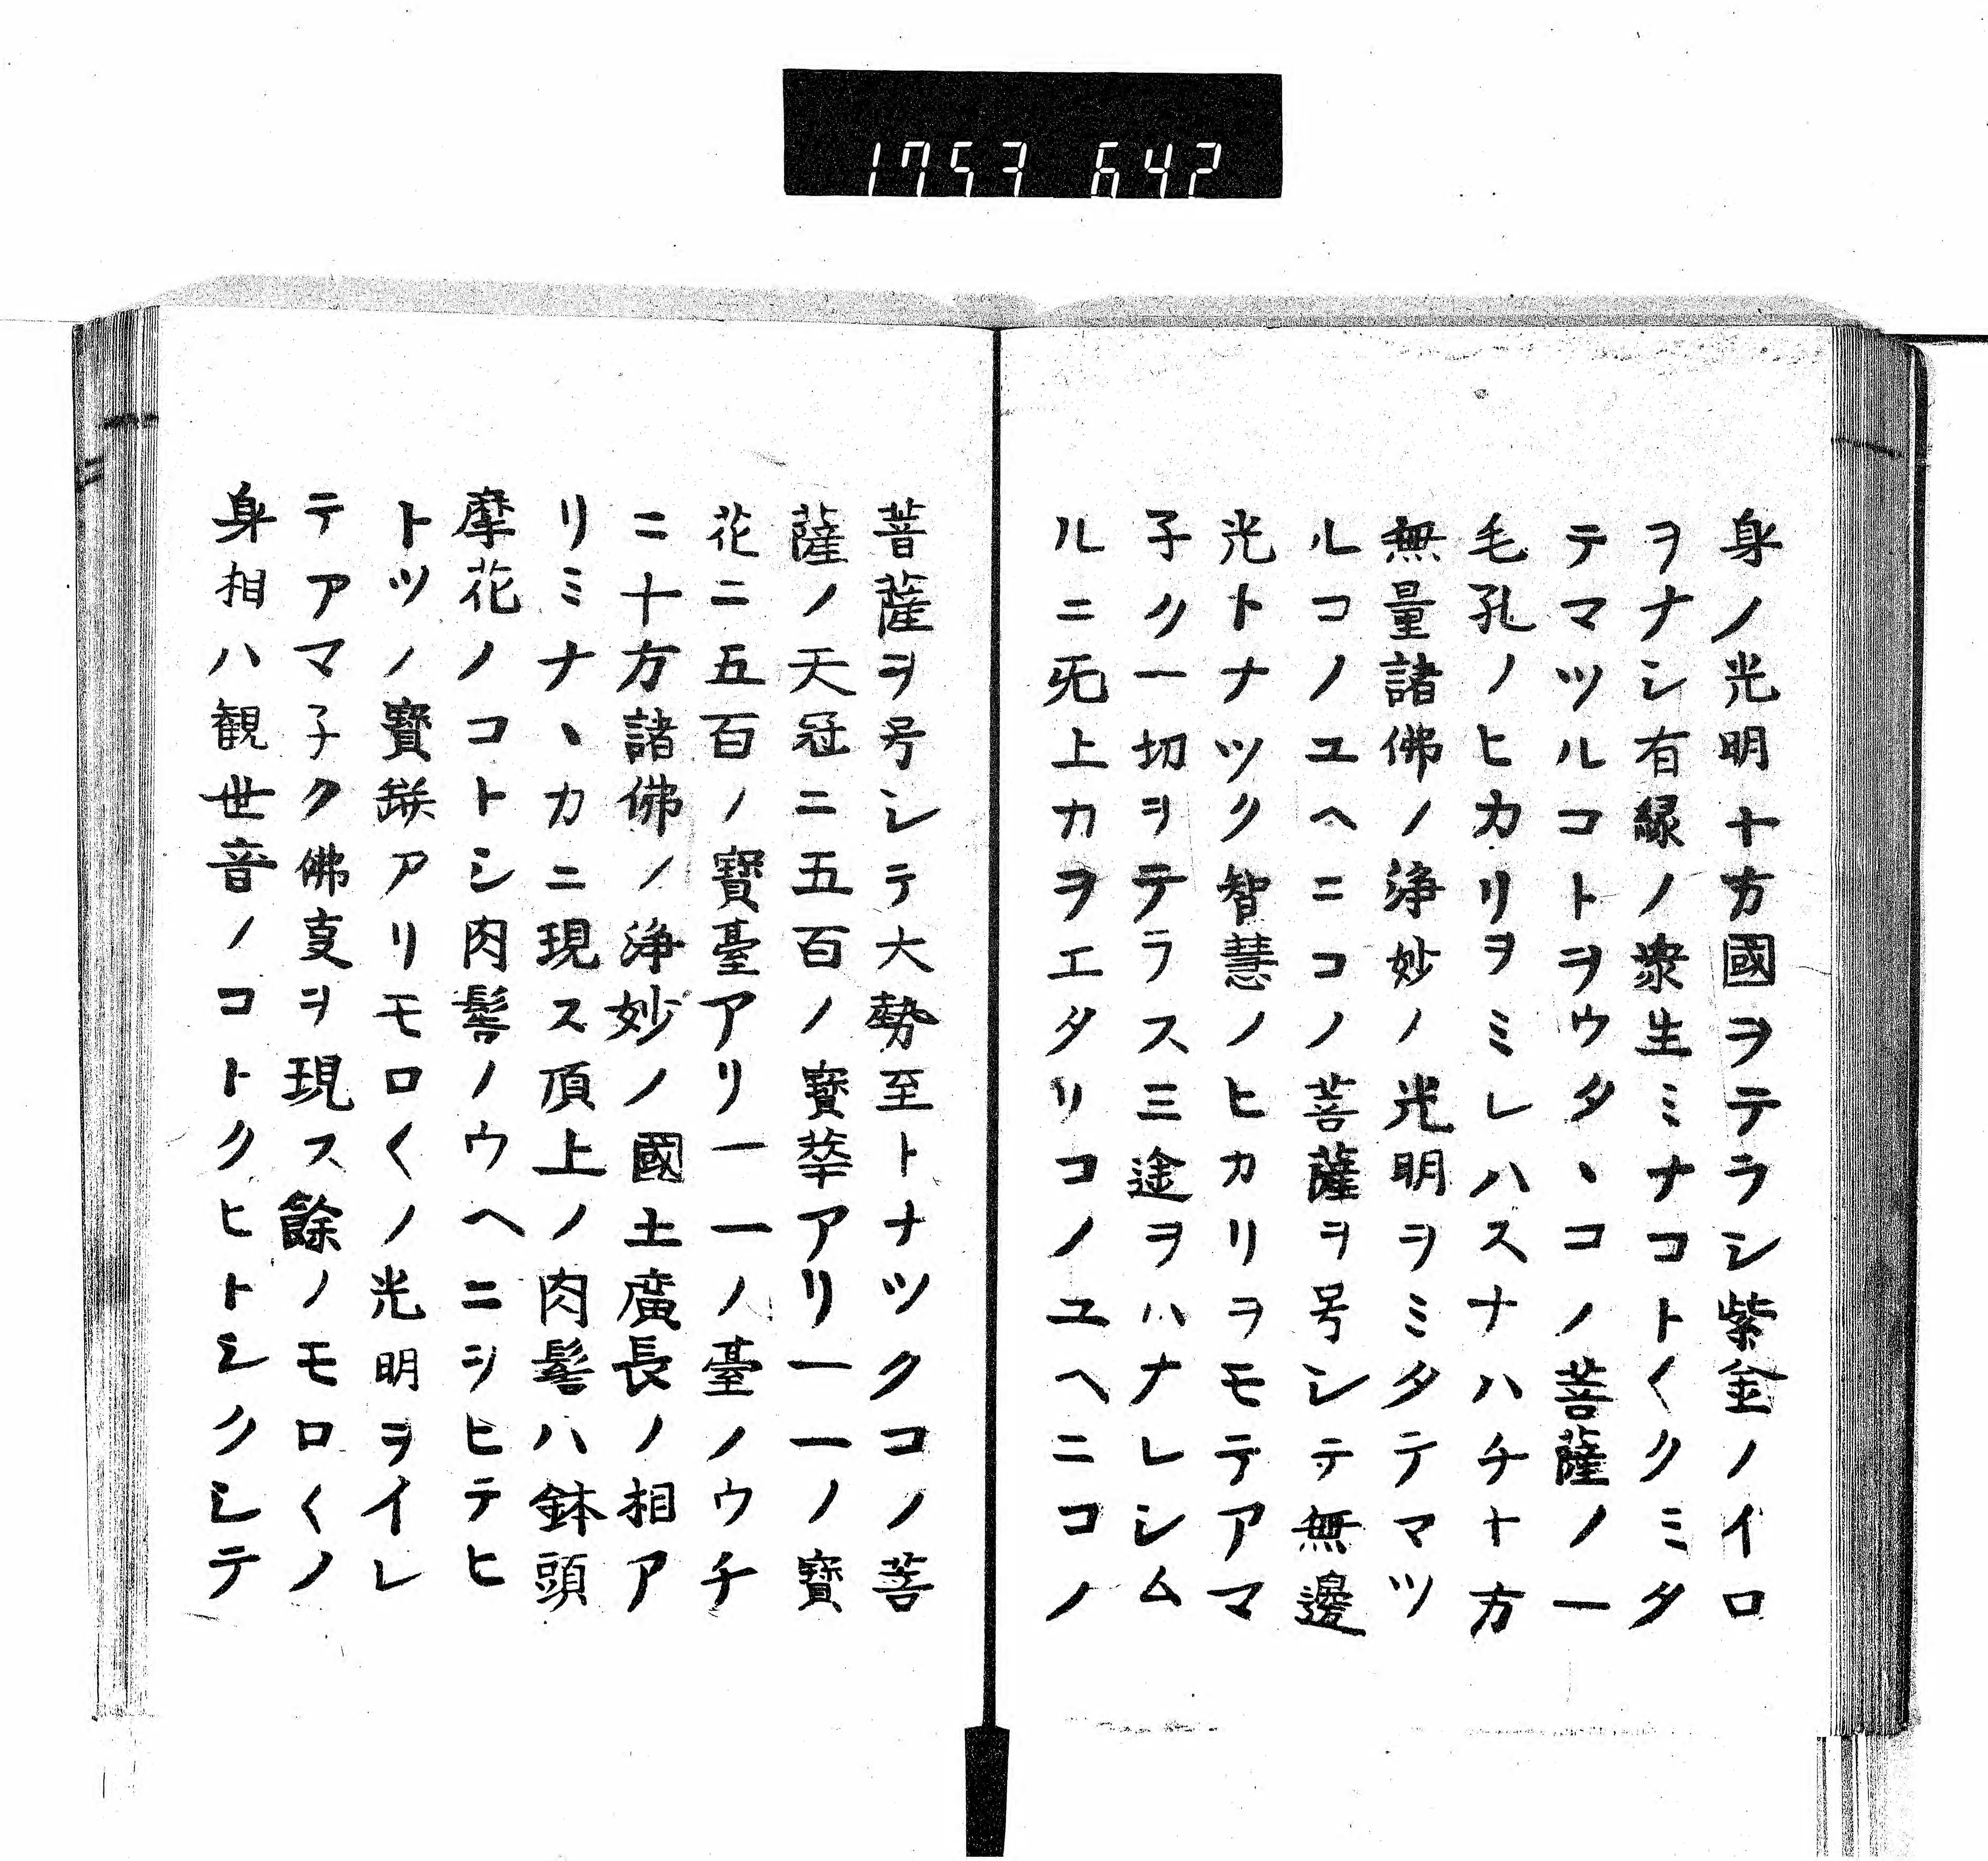 1753 642
身ノ光明十方國ヲテラシ紫金ノイロ
ヲナシ有縁ノ衆生ミナコト〱クミタ
テマツルコトヲウタヽコノ菩薩ノ一
毛孔ノヒカリヲミレハスナハチ十方
無量諸佛ノ浄妙ノ光明ヲミタテマツ
ルコノユヘニコノ菩薩ヲ号シテ無邊
光トナツク智慧ノヒカリヲモテアマ
子ク一切ヲテラス三途ヲハナレシム
ルニ旡上力ヲエタリコノユヘニコノ
菩薩ヲ号シテ大勢至トナツクコノ菩
薩ノ天冠ニ五百ノ寳華アリ一一ノ寳
花ニ五百ノ寳臺アリ一一ノ臺ノウチ
ニ十方諸佛ノ浄妙ノ國土廣長ノ相ア
リミナヽカニ現ス頂上ノ肉髻ハ鉢頭
摩花ノコトシ肉髻ノウヘニヲヒテヒ
トツノ寳缾アリモロ〱ノ光明ヲイレ
テアマ子ク佛叓ヲ現ス餘ノモロ〱ノ
身相ハ観世音ノコトクヒトシクシテ